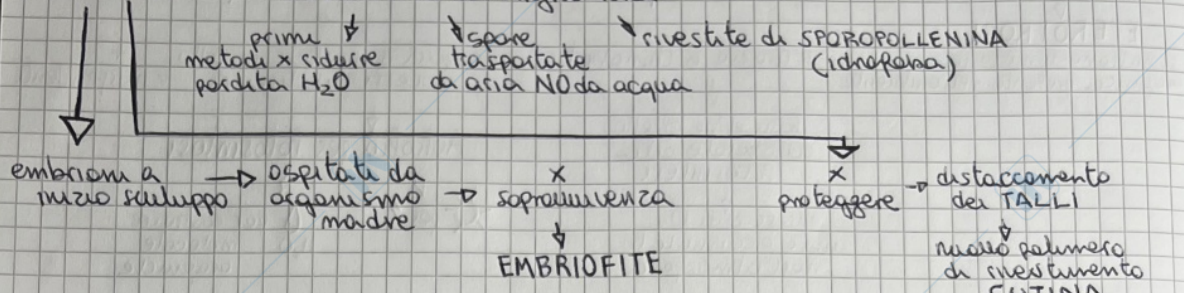 primi
metodi x ridurre
perdita H₂O
spore
trasportate
da aria NO da acqua
rivestite di SPOROPOLLENINA
(idrofoba)
embrioni a
inizio sviluppo
ospitati da
organismo
madre
x
sopravvivenza
EMBRIOFITE
x
proteggere
distaccamento
dei TALLI
nuovo polimero
di rivestimento